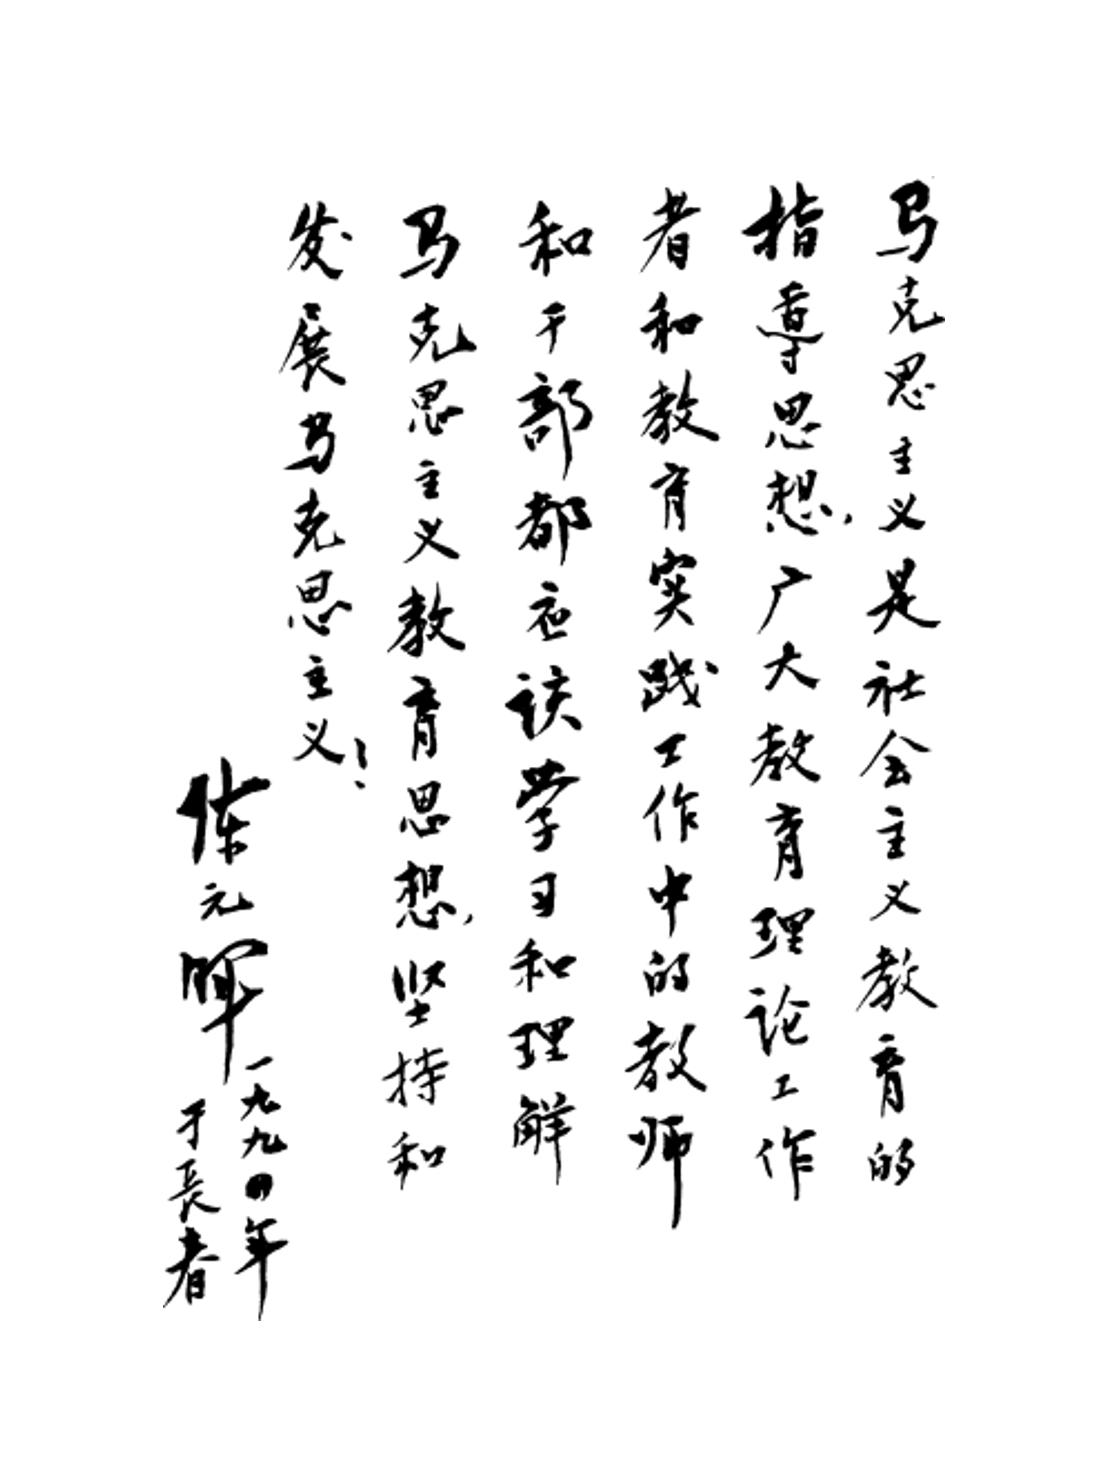 马克思主义是社会主义教育的
指导思想，广大教育理论工作
者和教育实践工作中的教师
和干部都应该学习和理解
马克思主义教育思想，坚持和
发展马克思主义！
陈元晖
一九九四年
于长春